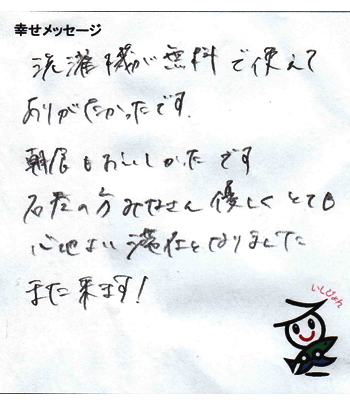 幸せメッセージ
洗濯機が無料で使えて
ありがたかったです.
朝食もおいしかったです
石庄の方みなさん優しくとても
心地よい滞在となりました
また来ます!
いしぴょん